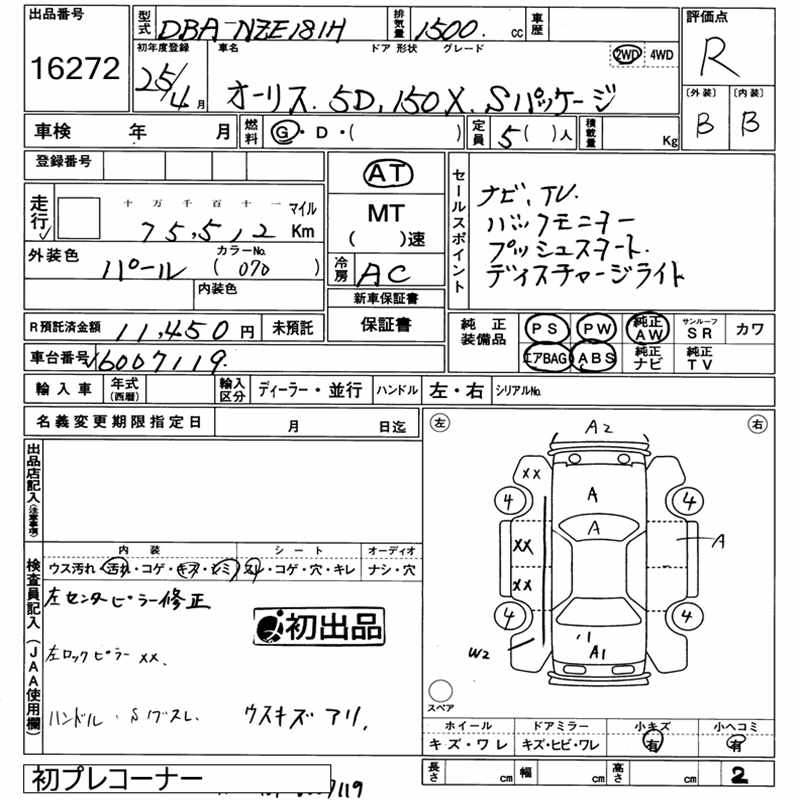 出品番号
16272
型式 DBA-NZE181H 排気量 1500. cc 車歴
評価点
R
〔外装〕 〔内装〕
B B
初年度登録 車名 ドア 形状 グレード 2WD 4WD
25/4月 オーリス. 5D. 150X. Sパッケージ
車検 年 月 燃料 G・D・( ) 定員 5( )人 積載量 Kg
登録番号
走行 十 万 千 百 十 一 マイル
75,512 Km
外装色 パール カラーNo. ( 070 )
内装色
AT
MT
( )速
冷房 AC
新車保証書
保証書
セールスポイント
ナビ、TV.
バックモニター
プッシュスタート.
ディスチャージライト
R預託済金額 11,450 円 未預託
車台番号 6007119.
純正装備品 PS PW 純正AW サンルーフSR カワ
エアBAG ABS 純正ナビ 純正TV
輸入車 年式(西暦) 輸入区分 ディーラー・並行 ハンドル 左・右 シリアルNo.
名義変更期限指定日 月 日迄
出品店記入(注意事項)
検査員記入(JAA使用欄)
内装 シート オーディオ
ウス汚れ・汚れ・コゲ・キズ・シミ スレ・コゲ・穴・キレ ナシ・穴
左センターピラー修正
初出品
左ロックピラー XX.
ハンドル. Sリブスレ ウスキズアリ.
左 右
A2
XX
4 A 4
A
XX A
XX
4 4
W2 A1
スペア
ホイール ドアミラー 小キズ 小ヘコミ
キズ・ワレ キズ・ヒビ・ワレ 有 有
長さ cm 幅 cm 高さ cm 2
初プレコーナー